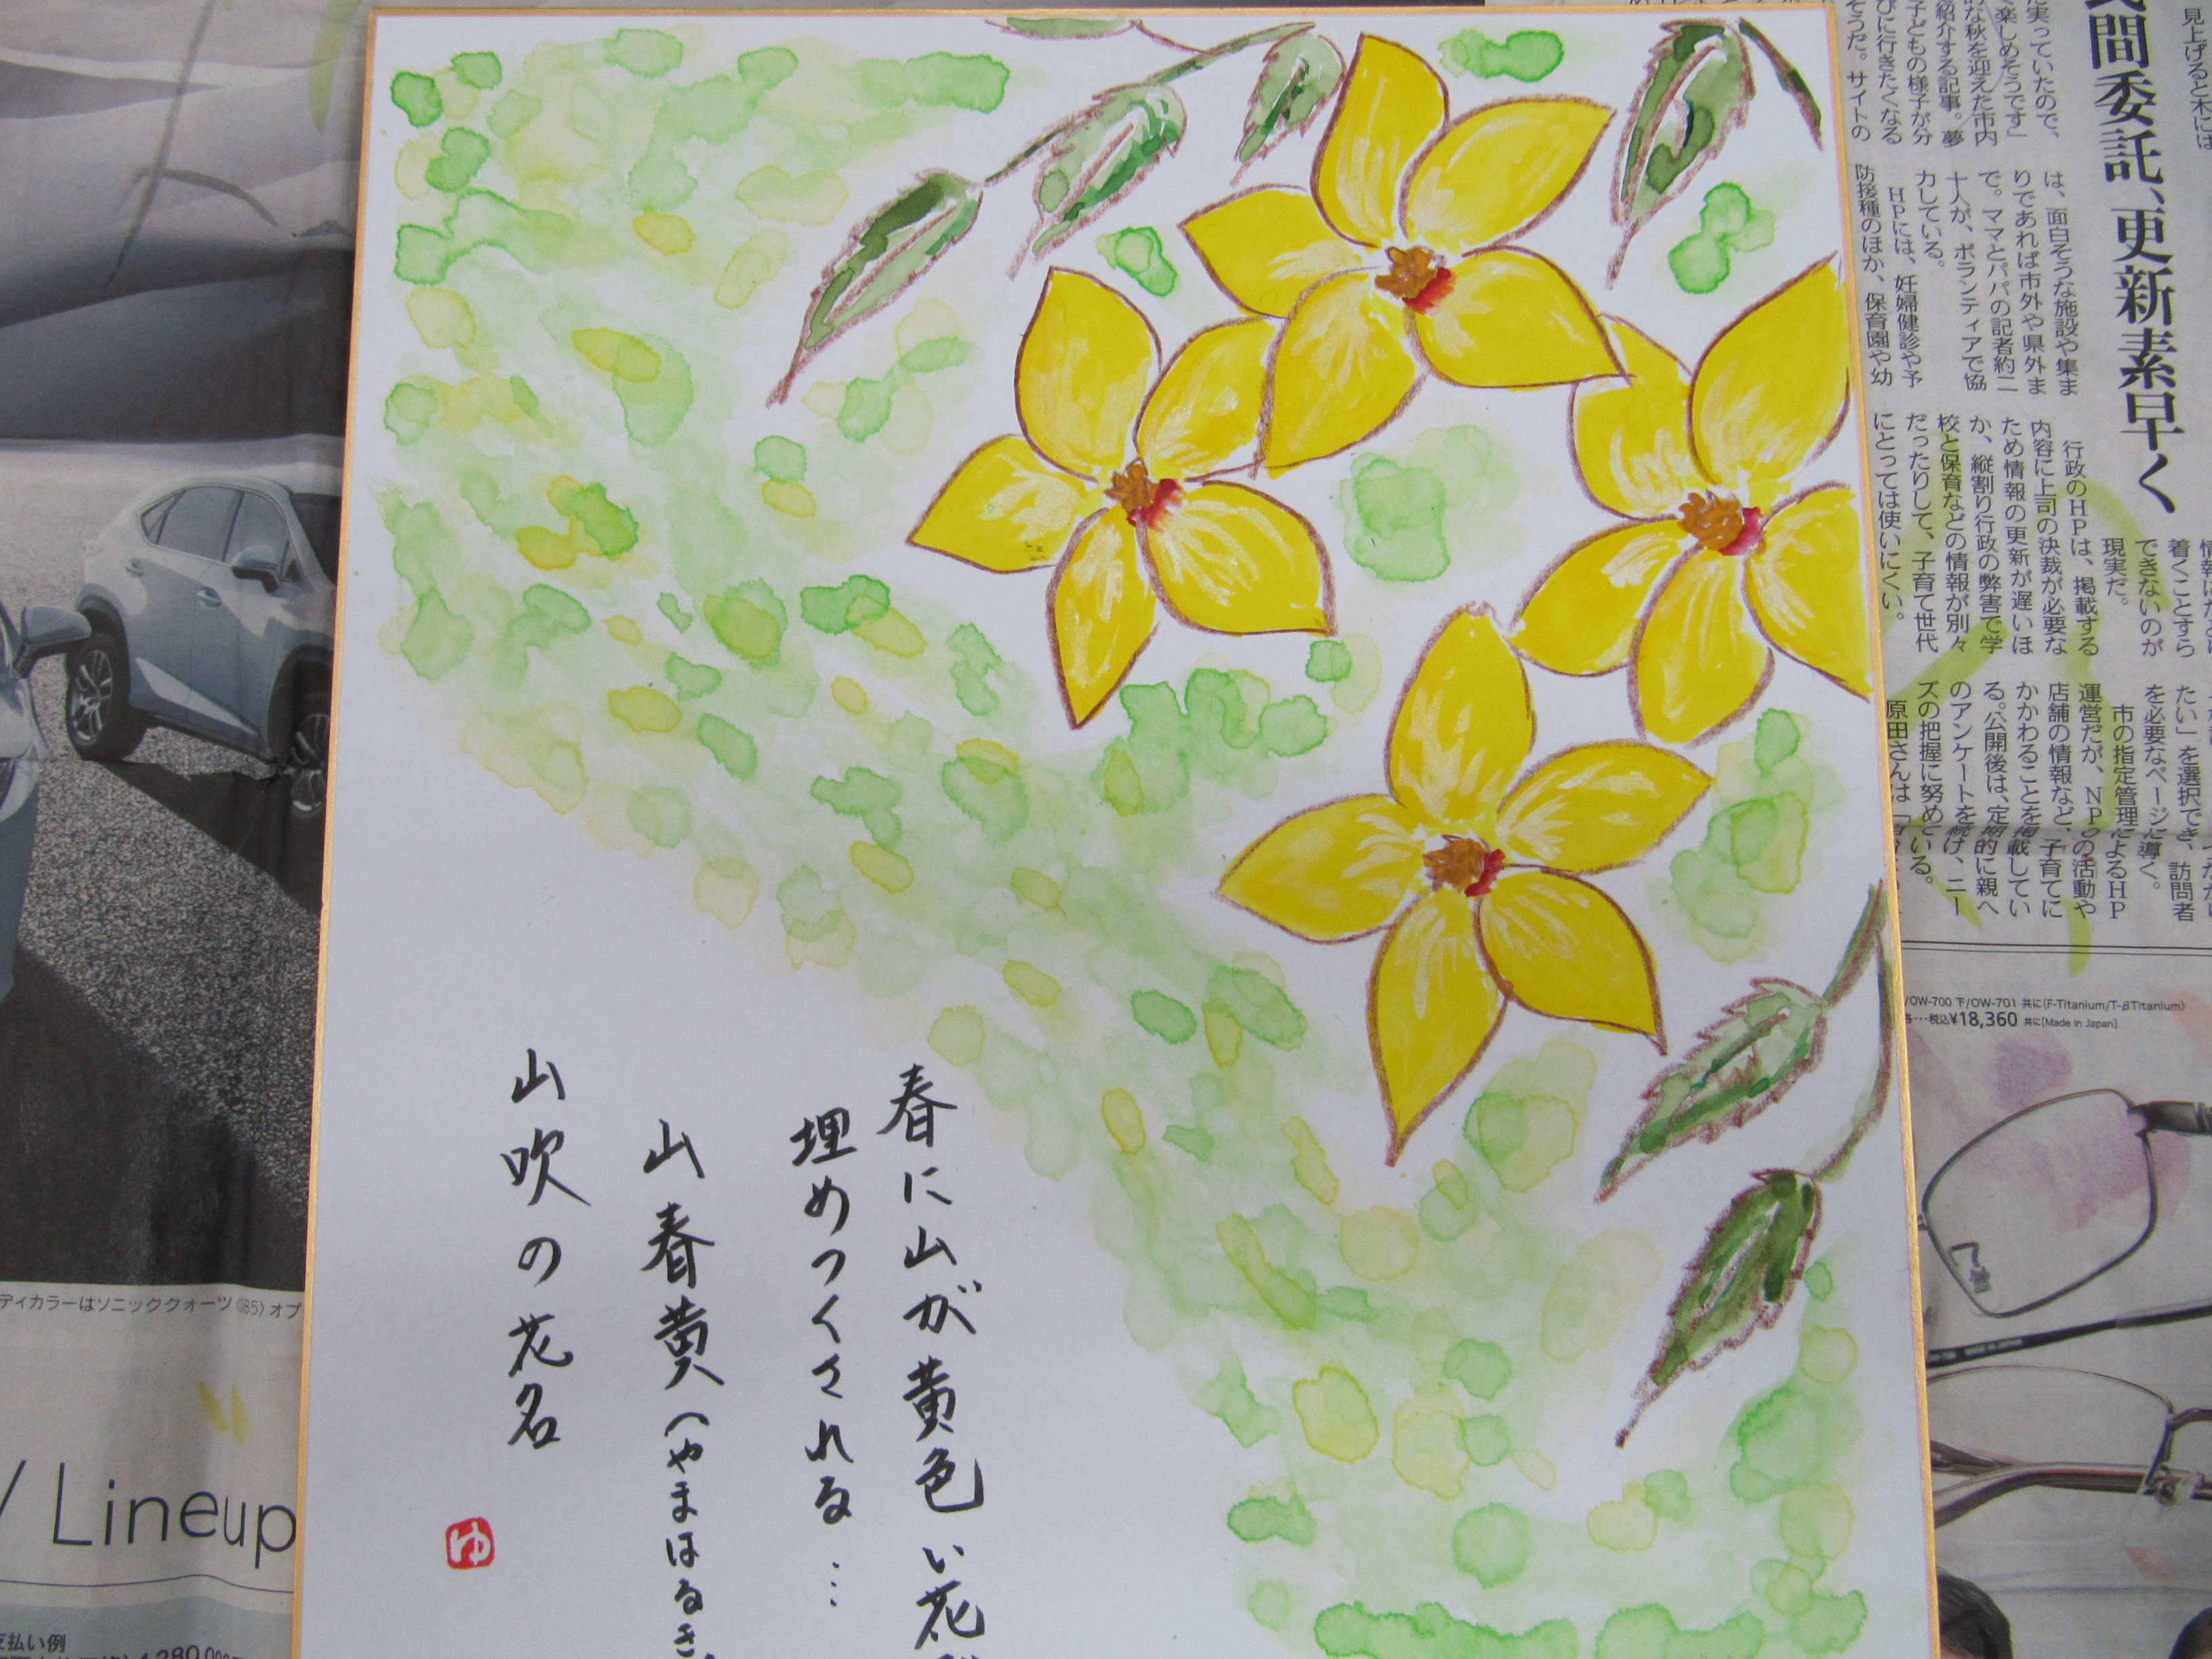 春に山が黄色い花
埋めつくされる…
山春黄（やまはるき
山吹の花名
ゆ
民間委託、更新素早く
見上げると木には
実っていたので、
く楽しめそうです」
的な秋を迎えた市内
紹介する記事。夢
子どもの様子が分
びに行きたくなる
そうだ。サイトの
は、面白そうな施設や集ま
りであれば市外や県外ま
で。ママとパパの記者約二
十人が、ボランティアで協
力している。
HPには、妊婦健診や予
防接種のほか、保育園や幼
行政のHPは、掲載する
内容に上司の決裁が必要な
ため情報の更新が遅いほ
か、縦割り行政の弊害で学
校と保育などの情報が別々
だったりして、子育て世代
にとっては使いにくい。
着くことすら
できないのが
現実だ。
たい」を選択でき、訪問者
を必要なページに導く。
市の指定管理によるHP
運営だが、NPOの活動や
店舗の情報など、子育てに
かかわることを掲載してい
る。公開後は、定期的に親へ
のアンケートを続け、ニー
ズの把握に努めている。
原田さんは
/OW-700 下/OW-701 共に(F-Titanium/T-βTitanium)
各…税込¥18,360 共に[Made in Japan]
ディカラーはソニッククォーツ〈085〉オプ
/ Lineup
支払い例